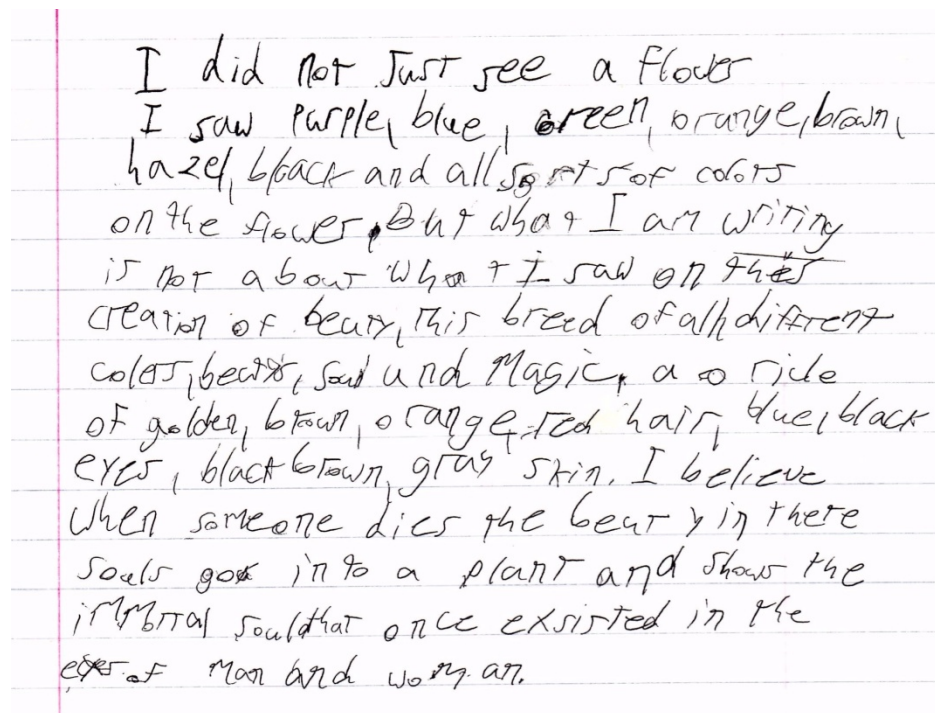 I did not Just see a flower
I saw Purple, blue, green, orange, brown,
hazel, black and all sorts of colors
on the flower, But what I am writing
is not about what I saw on this
creation of beauty, this breed of all different
colors, beauty, soul and Magic, a
of golden, brown, orange, red hair, blue, black
eyes, black brown, gray skin. I believe
when someone dies the beauty in there
souls goes into a plant and shows the
immortal soul that once exsisted in the
eyes of Man and woman.